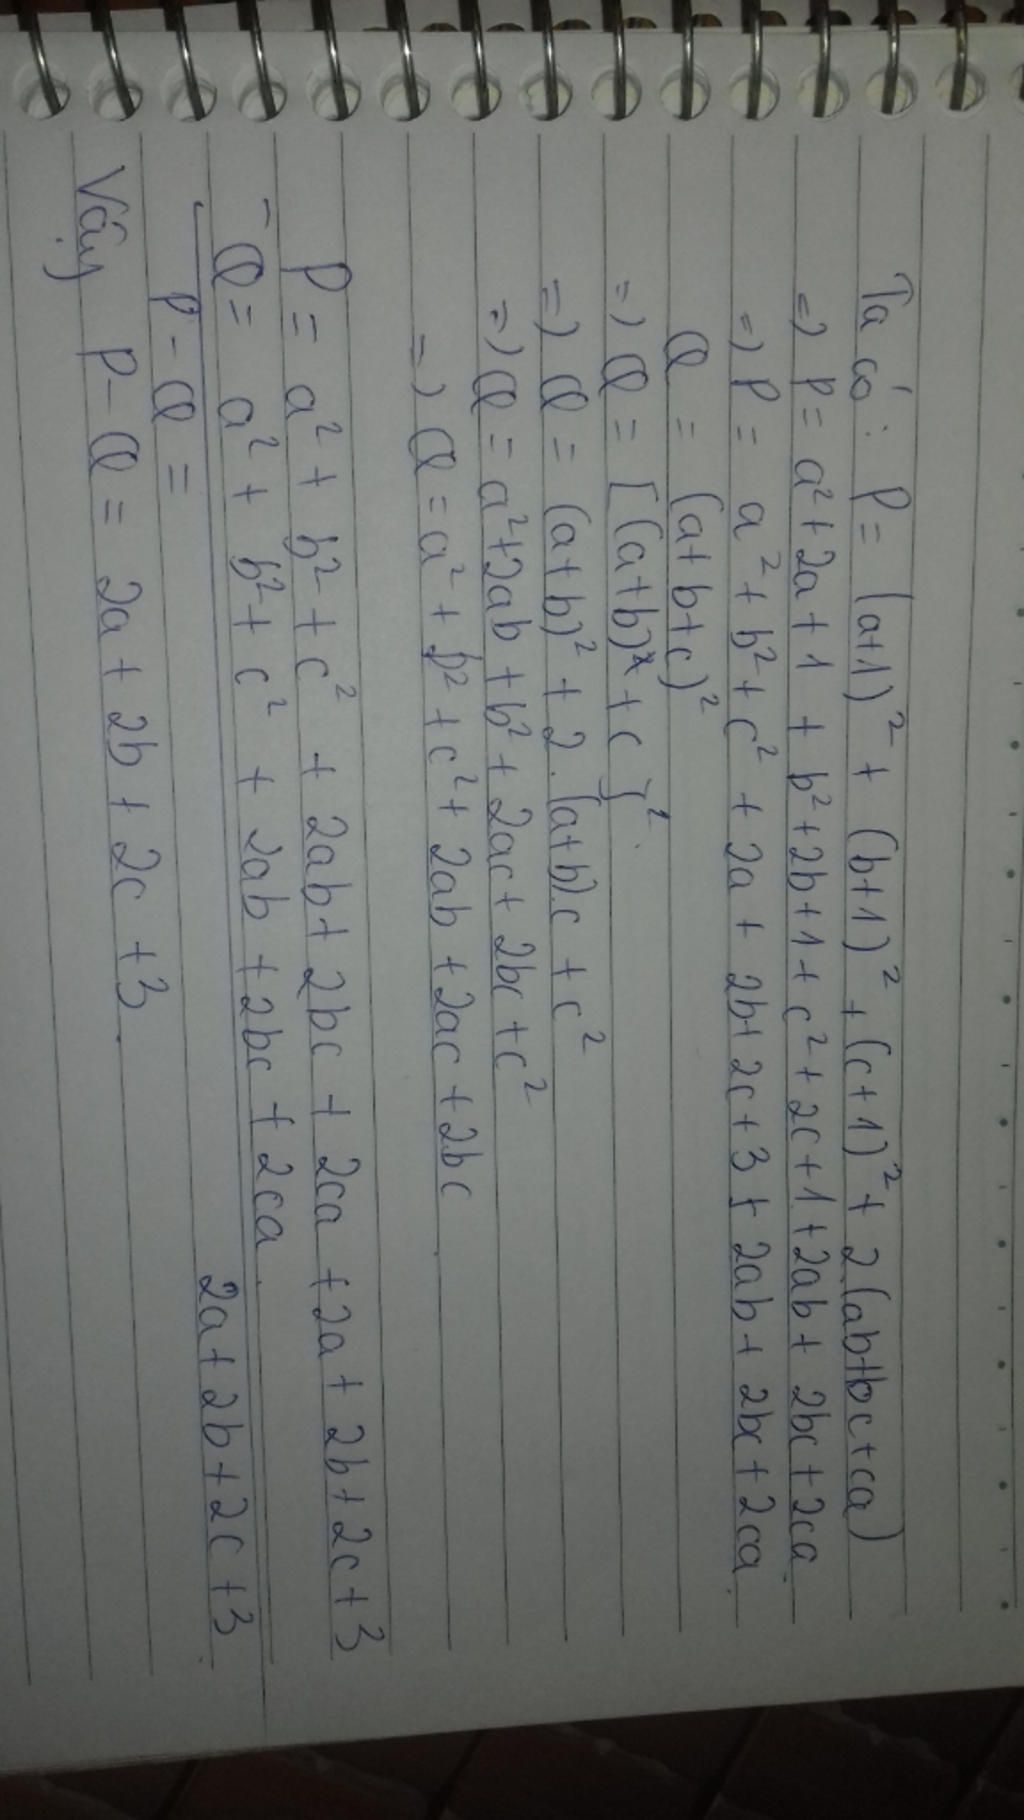 Ta có: P = (a+1)² + (b+1)² + (c+1)² + 2(ab+bc+ca)
=) P = a² + 2a + 1 + b² + 2b + 1 + c² + 2c + 1 + 2ab + 2bc + 2ca
=) P = a² + b² + c² + 2a + 2b + 2c + 3 + 2ab + 2bc + 2ca
Q = (a+b+c)²
=) Q = [(a+b) + c]²
=) Q = (a+b)² + 2.(a+b).c + c²
=) Q = a² + 2ab + b² + 2ac + 2bc + c²
=) Q = a² + b² + c² + 2ab + 2ac + 2bc
P = a² + b² + c² + 2ab + 2bc + 2ca + 2a + 2b + 2c + 3
- Q = a² + b² + c² + 2ab + 2bc + 2ca
P - Q = 2a + 2b + 2c + 3
Vậy P - Q = 2a + 2b + 2c + 3.